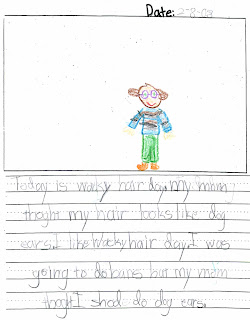 Date: 2-8-08
Today is wacky hair day. My mommy
thoght my hair looks like dog
ears. I like Wacky hair day. I was
going to do buns but my mom
thoght I shod do dog ears.